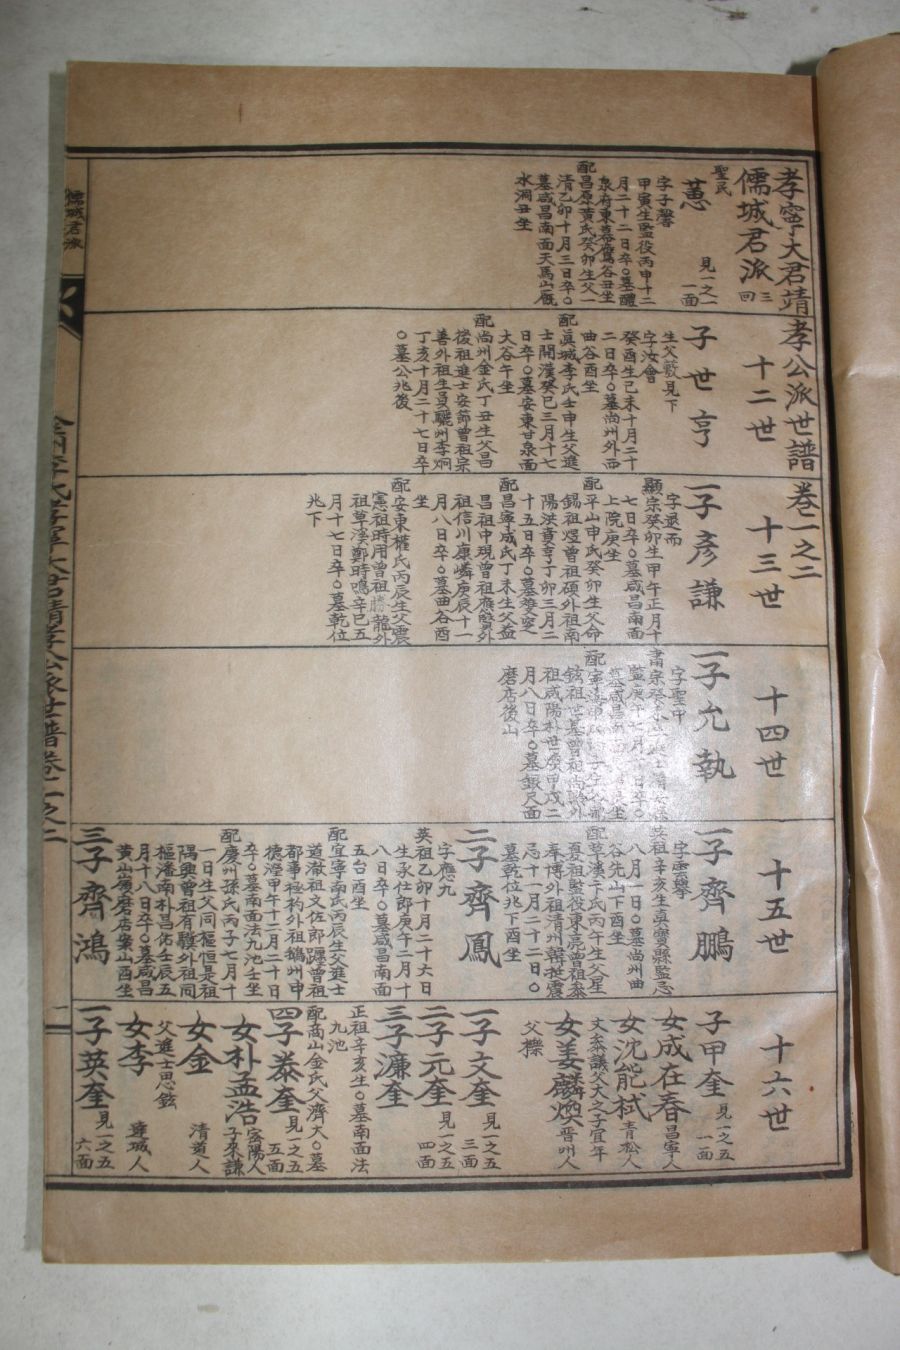 孝寧大君靖孝公派世譜卷一之二
儒城君派
三四
聖民
蒠
見一之一
一面
字子馨
甲寅生監役丙申十二
月二十二日卒○墓醴
泉府東墓鷹谷丑坐
配昌原黃氏癸卯生父一
清乙卯十月三日卒○
墓咸昌南面天馬山
水洞丑坐
十二世
子世亨
生父歡見下
字汝會
癸酉生己未十月二十
二日卒○墓尚州外西
曲谷酉坐
配眞城李氏壬申生父進
士開漢癸巳三月十七
日卒○墓安東甘泉面
大谷午坐
配尚州金氏丁丑生父昌
後祖進士安節曾祖宗
善外祖生員驪州李炯
丁亥十月二十七日卒
○墓公兆後
十三世
一子彥謙
字退而
顯宗癸卯生甲午正月十
七日卒○墓咸昌南面
上院庚坐
配平山申氏癸卯生父命
錫祖煜曾祖碩外祖南
陽洪賁亨丁卯三月二
十五日卒○墓雙
配昌寧成氏丁未生父益
昌祖中現曾祖應賢外
祖信川康嶙庚辰十一
月八日卒○墓曲谷酉
坐
配安東權氏丙辰生父震
憲祖時用曾祖勝龍外
祖草溪鄭時鳴辛巳五
月十七日卒○墓乾位
兆下
十四世
一子允執
字聖中
肅宗癸
月八日卒○墓銀尺面
磨店後山
十五世
一子齊鵬
字雲擧
英祖辛亥生眞寶縣監忌
八月一日○墓尚州曲
谷先山下酉坐
配草溪卞氏丙午生父星
夏祖監役東亮曾祖泰
奉博外祖清州韓挺震
忌十一月二十二日○
墓乾位兆下酉坐
二子齊鳳
字應九
英祖乙卯十月二十六日
生永仕郎庚午二月十
八日卒○墓咸昌南面
五台酉坐
配宜寧南氏丙辰生父進士
道澈祖文佐郎躔曾祖
都事極杓外祖鵝州申
德溟甲午十二月二十
卒○墓南面法九池壬坐
配慶州孫氏丙子七月十
一日生父同樞恒是祖
隅興曾祖有驥外祖同
樞潘南朴昌佑壬辰五
月十八日卒○墓咸昌
黃山嶺磨店案山酉坐
三子齊鴻
十六世
子甲奎
見一之五
一面
女成在春
昌寧人
女沈能栻
青松人
文參議父大之子宜年
女姜麟煥
晋州人
父櫟
一子文奎
見一之五
三面
二子元奎
見一之五
四面
三子濂奎
正祖辛亥生○墓南面法
九池
配商山金氏父濟大○墓
四子泰奎
見一之五
五面
女朴孟浩
密陽人
子來謙
女金
清道人
父進士思鉉
女李
驪城人
一子英奎
見一之五
六面
儒城君派
全州李氏孝寧大君靖孝公派世譜卷一之二
一